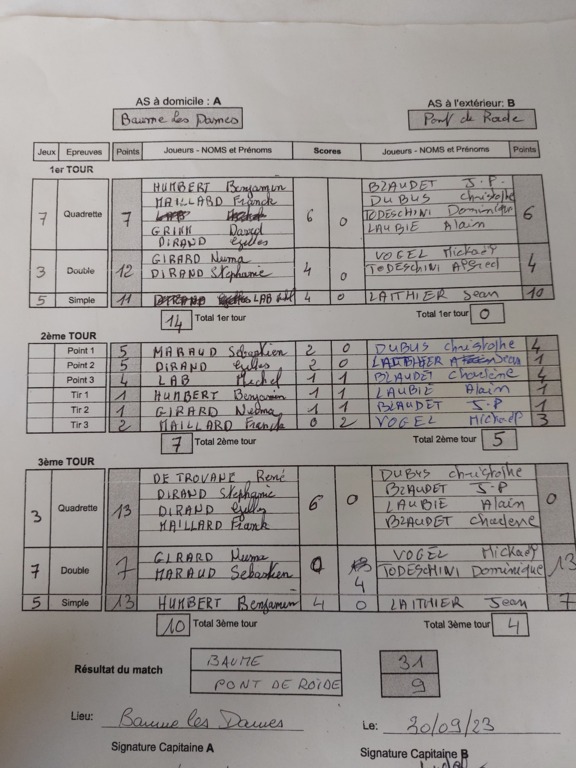 AS à domicile : A AS à l'extérieur: B
Baume les Dames Pont de Roide
Jeux Epreuves Points Joueurs - NOMS et Prénoms Scores Joueurs - NOMS et Prénoms Points
1er TOUR
7 Quadrette 7 HUMBERT Benjamin 6 0 BLAUDET J.P. 6
MAILLARD Franck DUBUS Christophe
TODESCHINI Dominique
GRIHN David LAUBIE Alain
DIRAND Gilles
3 Double 12 GIRARD Numa 4 0 VOGEL Mickaël 4
DIRAND Stéphanie TODESCHINI Alfred
5 Simple 11 LAB 4 0 LAITHIER Jean 10
14 Total 1er tour Total 1er tour 0
2ème TOUR
Point 1 5 MARAUD Sébastien 2 0 DUBUS Christophe 4
Point 2 5 DIRAND Gilles 2 0 Jean 1
Point 3 4 LAB Michel 1 1 BLAUDET Charlène 4
Tir 1 1 HUMBERT Benjamin 1 1 LAUBIE Alain 1
Tir 2 1 GIRARD Numa 1 1 BLAUDET J.P 1
Tir 3 2 MAILLARD Franck 0 2 VOGEL Mickaël 3
7 Total 2ème tour Total 2ème tour 5
3ème TOUR
3 Quadrette 13 DE TROVANE René 6 0 DUBUS Christophe 0
DIRAND Stéphanie BLAUDET J-P
DIRAND Gilles LAUBIE Alain
MAILLARD Frank BLAUDET Charlene
7 Double 7 GIRARD Numa 0 4 VOGEL Mickaël 13
MARAUD Sébastien TODESCHINI Dominique
5 Simple 13 HUMBERT Benjamin 4 0 LAITHIER Jean 7
10 Total 3ème tour Total 3ème tour 4
Résultat du match BAUME 31
PONT DE ROIDE 9
Lieu: Baume les Dames Le: 20/09/23
Signature Capitaine A Signature Capitaine B